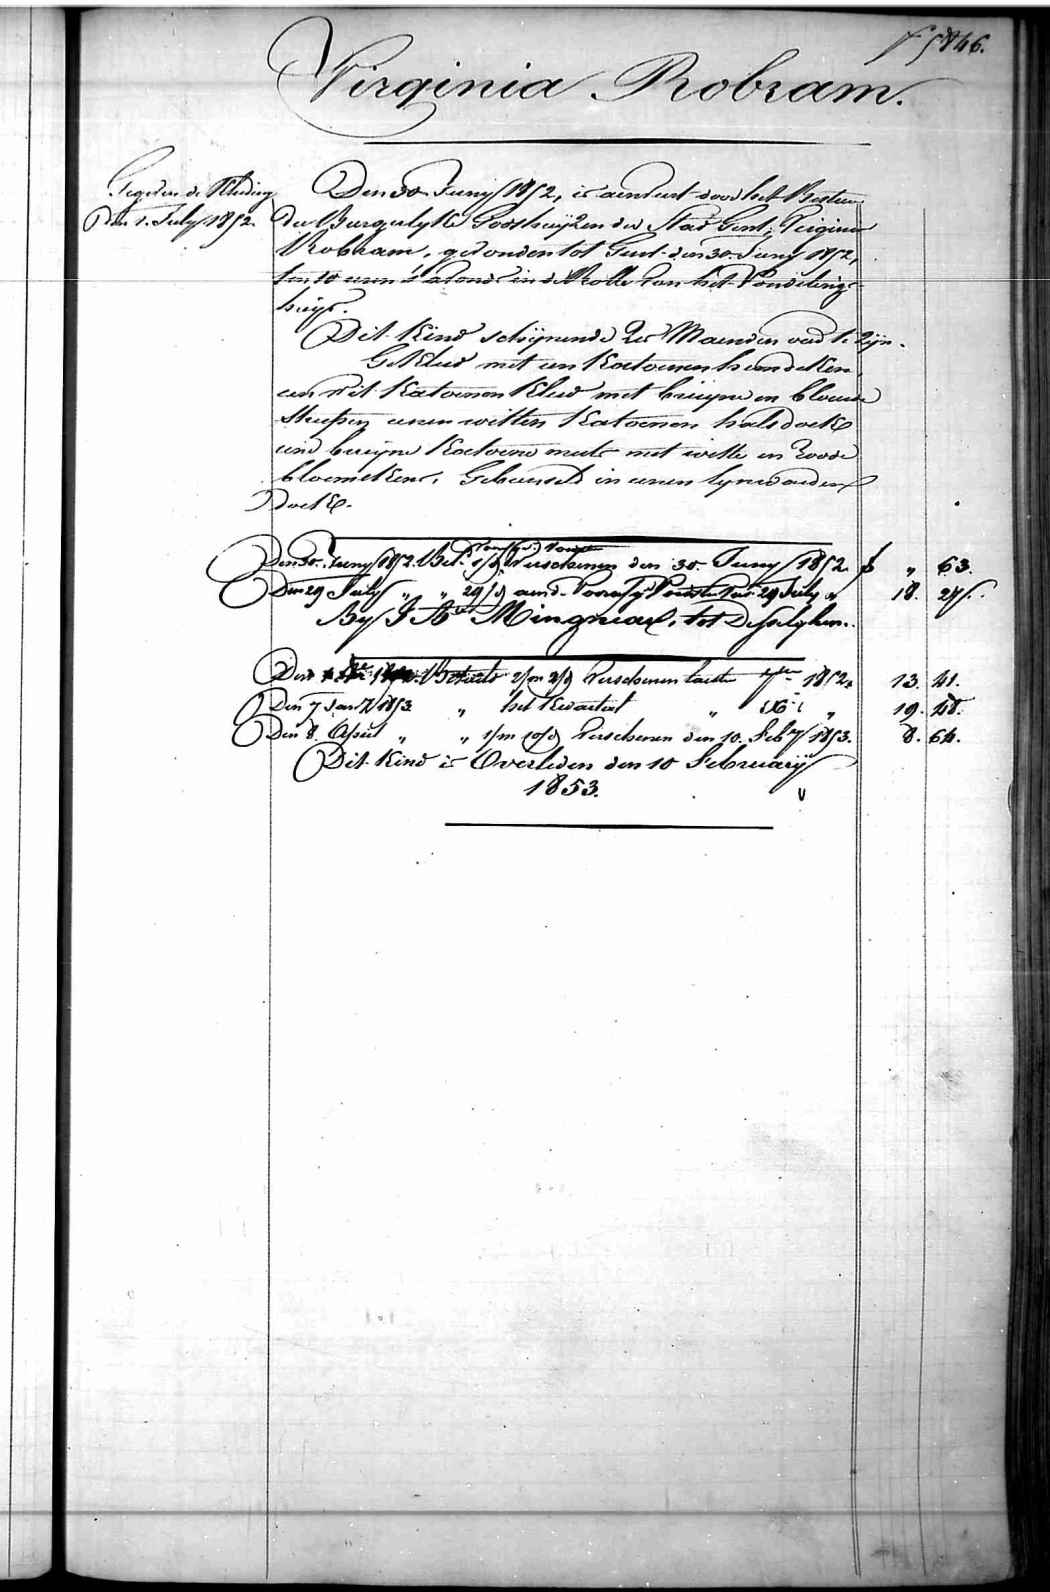 f° 5846.
Virginia Robram.
Gegeven de Kleeding
Den 1. July 1852.
Den 30. Juny 1852, is aenveert door het Bestier
der Burgerlyke Godshuyzen der Stad Gent, Virginia
Robram, gevonden tot Gent den 30. Juny 1852,
ten 10 uren s'avonds in de Rolle van het Vondeling-
huys.
Dit Kind schynende zes Maenden oud te zyn.
Gekleed met een Katoenen hemdeken,
een wit Katoenen Kleed met bruyne en blauwe
streepen eenen witten Katoenen halsdoek
eene bruyne Katoene muts met witte en roode
bloemekens. Gebusseld in eenen lynwaeden
doek.
Den 30. Juny 1852. Bet. 1/d Verschenen den 30. Juny 1852. f " 63.
Den 29 July " " 29/d aend. 29 July " 18. 27.
By J. Bte Mingneau, tot Desselghem.
Den Betaeld 2/m 2/d Verschenen laeste 7ber 1852. 13. 41.
Den 7 Jan.y 1853 " het Kwartael " Xber " 19. 48.
Den 8. April " " 1/m 10/d Verschenen den 10. Feb.y 1853. 8. 64.
Dit Kind is Overleden den 10 February
1853.